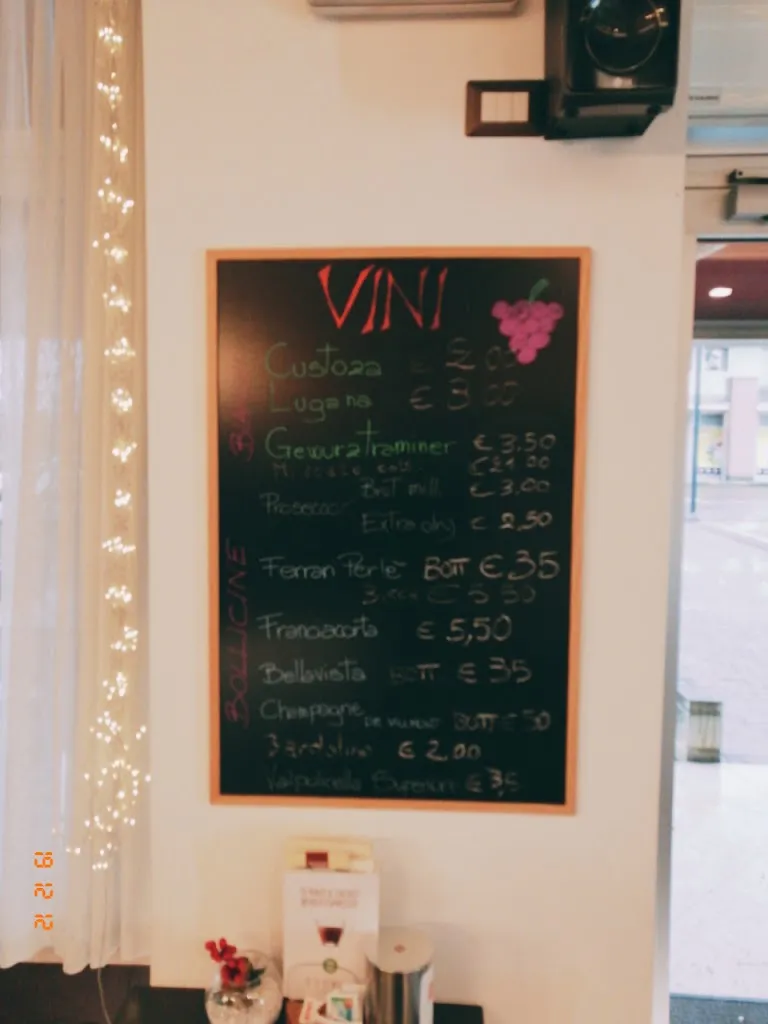 VINI
Custoza € 2,00
Lugana € 3,00
Gewurztraminer € 3,50
€ 21 00
Prosecco Brut mill € 3,00
Extra dry € 2,50
BOLLICINE
Ferrari Perlè BOTT € 35
€ 5 50
Franciacorta € 5,50
Bellavista BOTT € 35
Champagne BOTT € 50
Bardolino € 2,00
Valpolicella Superiore € 3,5
19 12 12